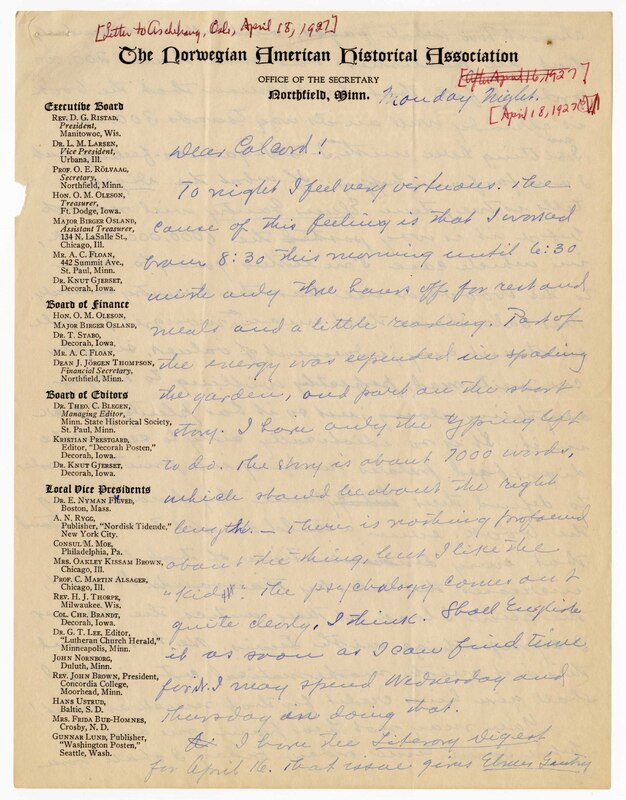 [Letter to Andr Haug, Oslo, April 18, 1927]
The Norwegian American Historical Association
OFFICE OF THE SECRETARY
Northfield, Minn.
[After April 16, 1927]
Monday Night.
[April 18, 1927]
Executive Board
REV. D. G. RISTAD,
President,
Manitowoc, Wis.
DR. L. M. LARSEN,
Vice President,
Urbana, Ill.
PROF. O. E. RÖLVAAG,
Secretary,
Northfield, Minn.
HON. O. M. OLESON,
Treasurer,
Ft. Dodge, Iowa.
MAJOR BIRGER OSLAND,
Assistant Treasurer,
134 N. LaSalle St.,
Chicago, Ill.
MR. A. C. FLOAN,
442 Summit Ave.,
St. Paul, Minn.
DR. KNUT GJERSET,
Decorah, Iowa.
Board of Finance
HON. O. M. OLESON,
MAJOR BIRGER OSLAND,
DR. T. STABO,
Decorah, Iowa
MR. A. C. FLOAN,
DEAN J. JÖRGEN THOMPSON,
Financial Secretary,
Northfield, Minn.
Board of Editors
DR. THEO. C. BLEGEN,
Managing Editor,
Minn. State Historical Society,
St. Paul, Minn.
KRISTIAN PRESTGARD,
Editor, "Decorah Posten,"
Decorah, Iowa.
DR. KNUT GJERSET,
Decorah, Iowa.
Local Vice Presidents
DR. E. NYMAN FIGVED,
Boston, Mass.
A. N. RYGG,
Publisher, "Nordisk Tidende,"
New York City.
CONSUL M. MOE,
Philadelphia, Pa.
MRS. OAKLEY KISSAM BROWN,
Chicago, Ill.
PROF. C. MARTIN ALSAGER,
Chicago, Ill.
REV. H. J. THORPE,
Milwaukee. Wis.
COL. CHR. BRANDT,
Decorah, Iowa.
DR. G. T. LEE, Editor,
"Lutheran Church Herald,"
Minneapolis, Minn.
JOHN NORNBORG,
Duluth, Minn.
REV. JOHN BROWN, President,
Concordia College,
Moorhead, Minn.
HANS USTRUD,
Baltic, S. D.
MRS. FRIDA BUE-HOMNES,
Crosby, N. D.
GUNNAR LUND, Publisher,
"Washington Posten,"
Seattle, Wash.
Dear Colcord!
To night I feel very virtuous. The
cause of this feeling is that I worked
from 8:30 this morning until 6:30
with only three hours off for rest and
meals and a little reading. Part of
the energy was expended in spading
the garden, and part on the short
story. I have only the typing left
to do. The story is about 7000 words,
which should be about the right
length. — There is nothing profound
about the thing, but I like the
"kid". The psychology comes out
quite clearly, I think. Shall English
it as soon as I can find time
for it. I may spend Wednesday and
Thursday in doing that.
I have the Literary Digest
for April 16. That issue gives Elmer Gantry